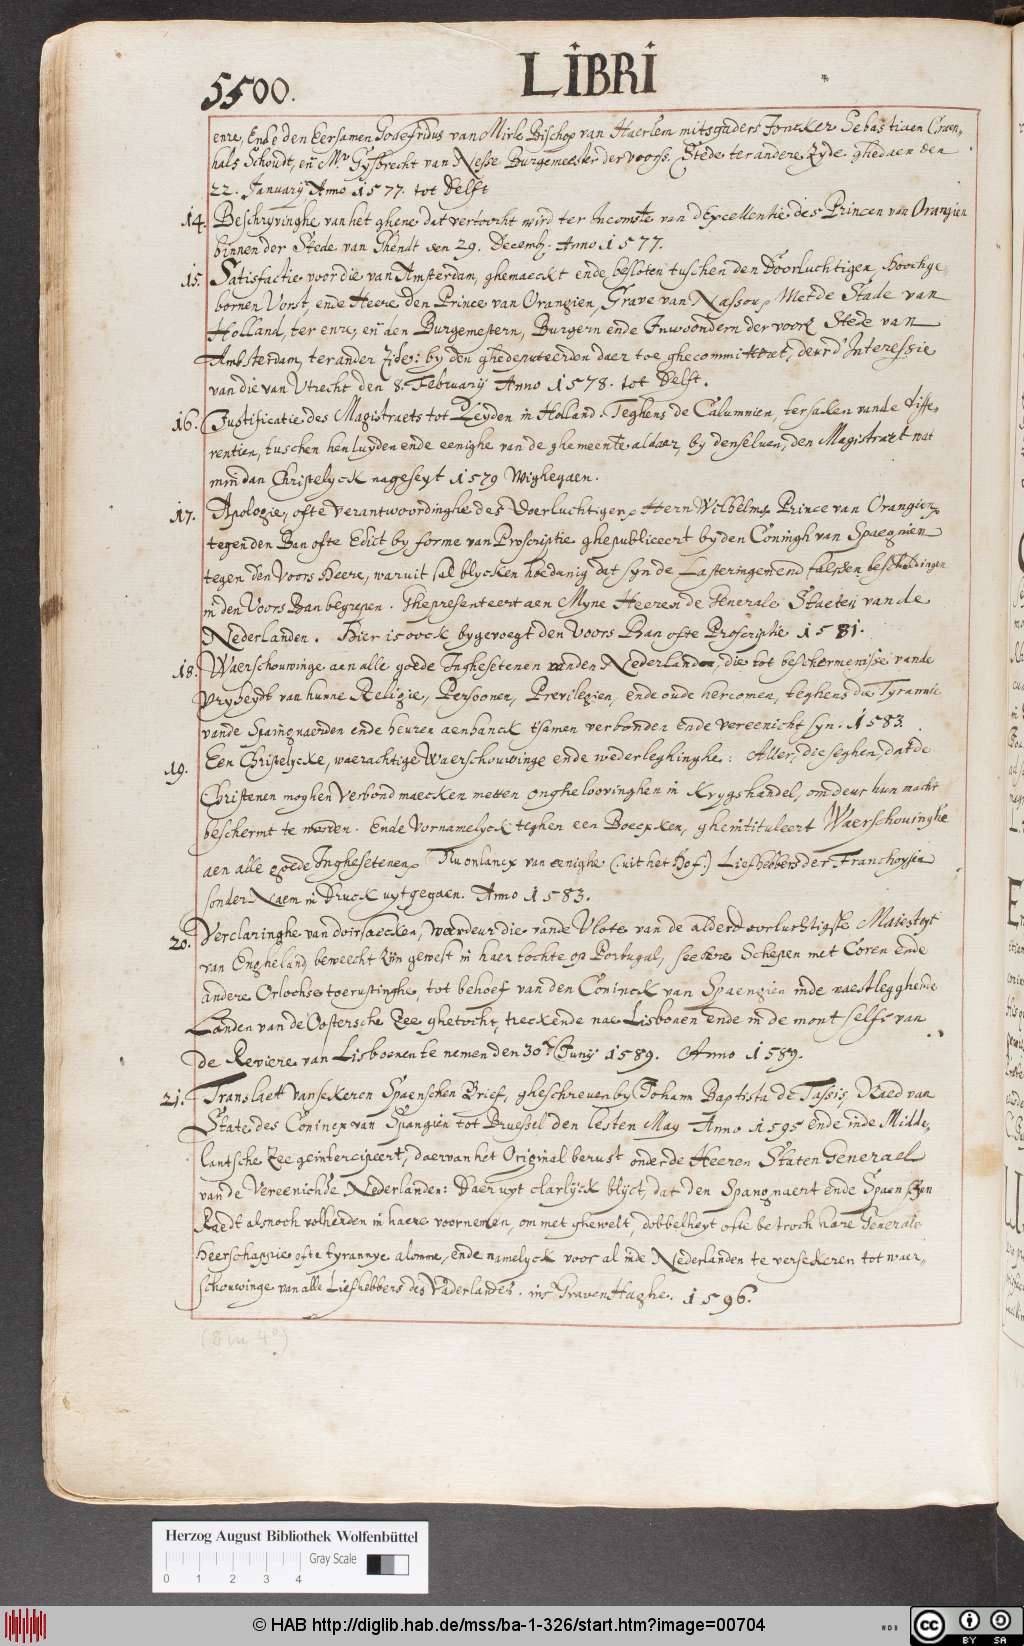 5500.
LIBRI
enre, Ende den Eersamen Godefridus van Mirle Bisschop van Haerlem mitsgaders Joncker Sebastiaen Craen,
hals Schoudt, en Mr Gysbrecht van Nesse Burgemeester der voorss. Stede ter andere zyde ghedaen den
22. Januarij Anno 1577. tot Delft
14. Beschryvinghe van het ghene dat vertoocht wird ter Incomste van d'Excellentie des Princen van Orangien
binnen der Stede van Ghendt den 29. Decemb. Anno 1577.
15. Satisfactie voor die van Amsterdam, ghemaeckt ende besloten tuschen den Doorluchtigen, Hoochge,
bornen Vorst, ende Heere den Prince van Orangien, Grave van Nassou, Metde Stade van
Holland, ter enre, en den Burgemestern, Burgern ende Inwoondern der voors Stede van
Ambsterdam, ter ander zide: by den ghedeputeerden daer toe ghecommitteert, deur d'Interessie
van die van Utrecht den 8. Februarij Anno 1578. tot Delft.
16. Justificatie des Magistraets tot Leyden in Holland. Teghens de Calumnien, ter saken vande diffe,
rentien, tuschen henluyden ende eenighe van de ghemeente aldaer, by denselven, den Magistraet nat
min dan Christelyck nageseyt 1579 Wighegaen.
17. Apologie, ofte Verantwoordinghe des Doerluchtigen Hern Wilhelms Prince van Orangien
tegen den Ban ofte Edict by forme van Proscriptie ghepubliceert by den Coningh van Spaegnien
tegen den Voors Heere, waruit sal blycken hoedanig dat syn de Lasteringen end falssen beschuldingen
in den Voors Ban begrepen. Ghepresenteert aen Myne Heeren de Generale Staeten van de
Nederlanden. Hier is oock bygevoegt den Voors Ban ofte Proscriptie 1581.
18. Waerschouwinge aen alle goede Inghesetenen vanden Nederlanden, die tot beschermenisse vande
Vryheydt van hunne Religie, Persoonen, Previlegien, ende oude hercomen, teghens die Tyrannie
vande Spaingnaerden ende heuren aenhanck tsamen verbonden ende vereenicht syn. 1583
19. Een Christelycke, waerachtige Waerschouwinge ende wederleghinghe: Aller, die seghen, dat de
Christenen moghen Verbond maecken metten ongheloovinghen in Krygshandel, om deur hun macht
beschermt te worden. Ende Vornamelyck teghen een Boecxken, gheintituleert Waerschouinghe
aen alle goede Inghesetenen Nu onlancx van eenighe (uit het Hof.) Liefhebbers der Franchoysen
sonder Naem in Druck uytgegaen. Anno 1583.
20. Verclaringhe van de oirsaecken, weerdeur die vande Vlote van de alderdoorluchtigste Maiesteyt
van Engheland beweecht Zijn gewest in haer tochte op Portugal, seekere Schepen met Coren ende
andere Orlochse toerustinghe, tot behoef van den Coninck van Spaengien inde naestlegghende
Landen van de Oostersche Zee ghetocht, treckende nae Lisbonen ende in de mont selfs van
de Reviere van Lisbonen te nemen den 30te Junij 1589. Anno 1589.
21. Translaett van sekeren Spaenschen Brief, gheschreven by Johann Baptista de Tassis, Raed van
State des Conincx van Spangien tot Bruessel den lesten May Anno 1595 ende inde Midde,
lantsche Zee geintercipeert, daervan het Original berust onder de Heeren Staten Generael
van de Vereenichde Nederlanden: Daer uyt clarlijck blijct, dat den Spangnaert ende Spaenschen
Raedt alsnoch volherden in haere voornemen, om met ghewelt, dobbelheyt ofte betroch hare Generale
Heerschappie ofte tyrannye alomme, ende namelyck voor al inde Nederlanden te versekeren tot waer,
schouwinge van alle Liefhebbers des Vaderlandes. ins Graven Haghe. 1596.
(8 in 4°)
Herzog August Bibliothek Wolfenbüttel
Gray Scale
0 1 2 3 4
© HAB http://diglib.hab.de/mss/ba-1-326/start.htm?image=00704
cc BY SA